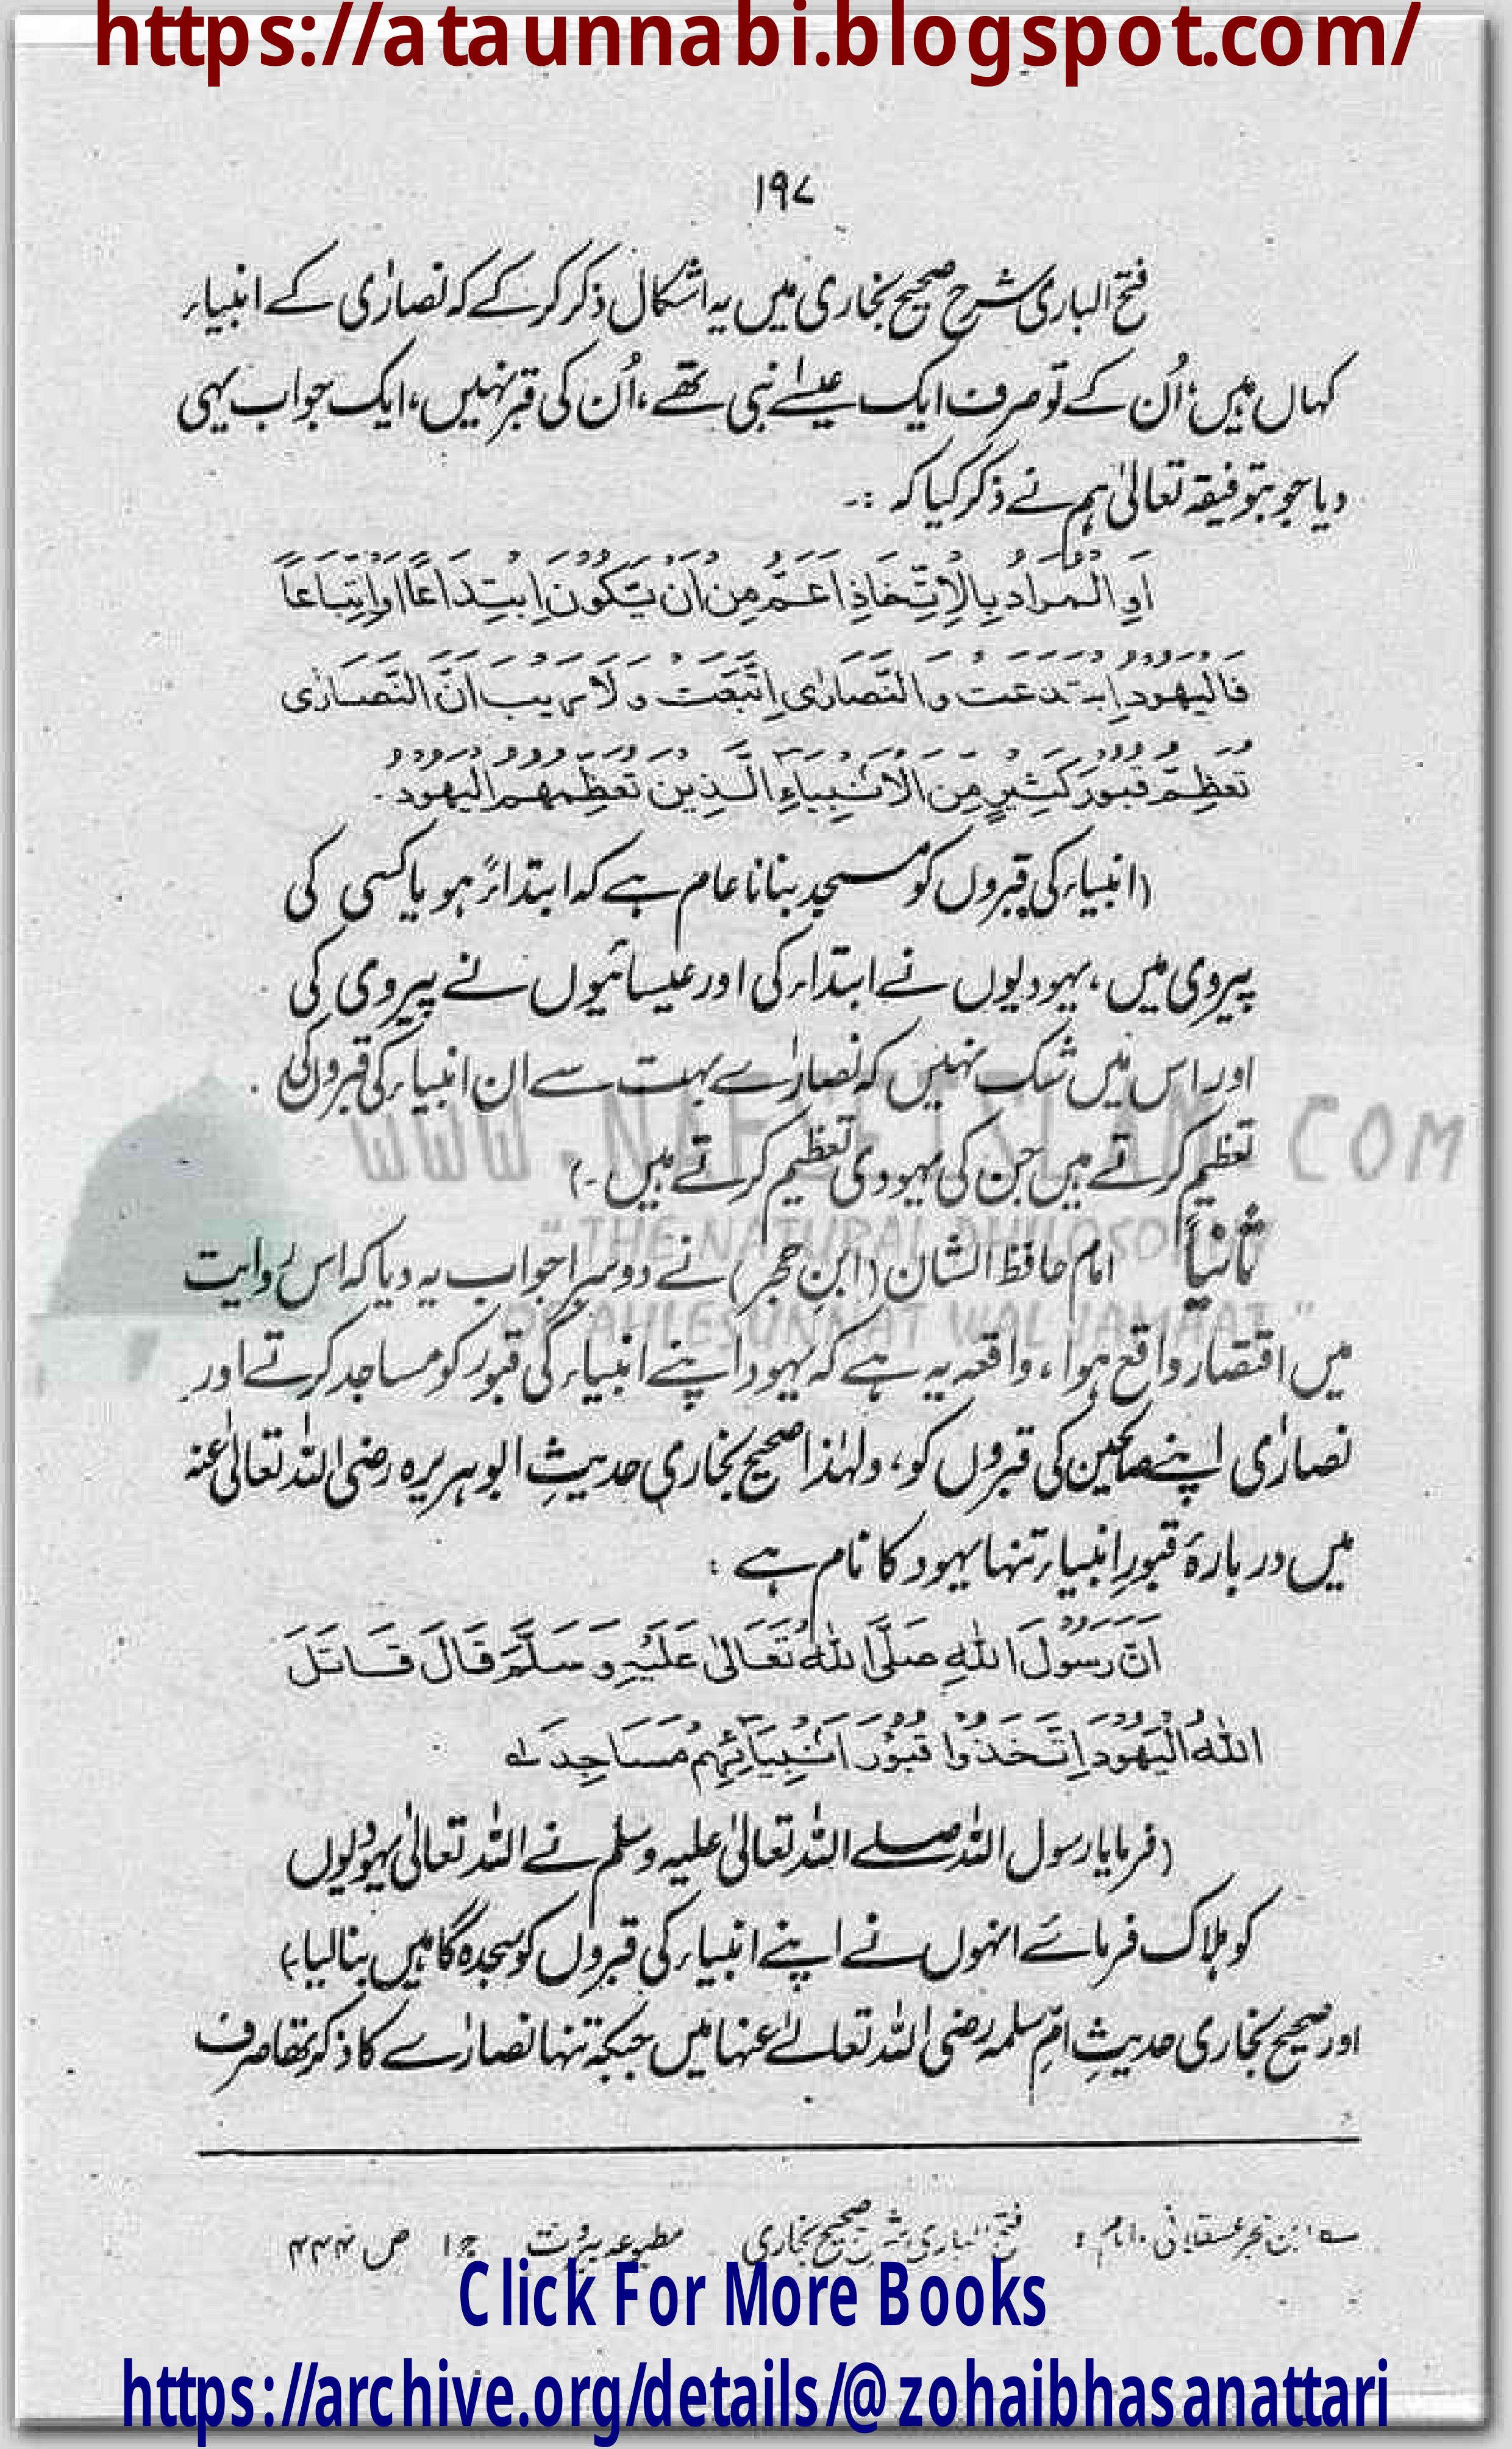 https://ataunnabi.blogspot.com/
۱۹۷
فتح الباری شرح صحیح بخاری میں یہ اشکال ذکر کرکے کہ نصارٰی کے انبیاء
کہاں ہیں؛ اُن کے تو صرف ایک عیسےٰ نبی تھے، اُن کی قبر نہیں، ایک جواب یہی
دیا جو بتوفیقہ تعالیٰ ہم نے ذکر کیا کہ :۔
اَوِ الْمُرَادُ بِالْاِتِّخَاذِ اَعَمُّ مِنْ اَنْ يَّكُوْنَ اِبْتِدَاعًا اَوْ اِتِّبَاعًا
فَالْيَهُوْدُ اِبْتَدَعَتْ وَالنَّصَارٰى اِتَّبَعَتْ وَلَا رَيْبَ اَنَّ النَّصَارٰى
تُعَظِّمُ قُبُوْرَ كَثِيْرٍ مِّنَ الْاَنْبِيَآءِ الَّذِيْنَ تُعَظِّمُهُمُ الْيَهُوْدُ ۔
(انبیاء کی قبروں کو مسجد بنانا عام ہے کہ ابتداءً ہو یا کسی کی
پیروی میں، یہودیوں نے ابتداء کی اور عیسائیوں نے پیروی کی
اور اس میں شک نہیں کہ نصارٰے بہت سے ان انبیاء کی قبروں کی
تعظیم کرتے ہیں جن کی یہودی تعظیم کرتے ہیں۔)
WWW.NAFSEISLAM.COM
"THE NATURAL PHILOSOPHY
OF AHLESUNNAT WAL JAMAAT"
ثانیاً امام حافظ الشان (ابنِ حجر) نے دوسرا جواب یہ دیا کہ اس روایت
میں اقتصار واقع ہوا، واقعہ یہ ہے کہ یہود اپنے انبیاء کی قبور کو مساجد کرتے اور
نصارٰی اپنے صالحین کی قبروں کو، ولہٰذا صحیح بخاری حدیثِ ابوہریرہ رضی اللہ تعالیٰ عنہ
میں دربارۂ قبورِ انبیاء تنہا یہود کا نام ہے :
اَنَّ رَسُوْلَ اللهِ صَلَّى اللهُ تَعَالٰى عَلَيْهِ وَسَلَّمَ قَالَ قَاتَلَ
اللهُ الْيَهُوْدَ اِتَّخَذُوْا قُبُوْرَ اَنْبِيَآئِهِمْ مَسَاجِدَ لے
(فرمایا رسول اللہ صلے اللہ تعالیٰ علیہ وسلم نے اللہ تعالیٰ یہودیوں
کو ہلاک فرمائے انہوں نے اپنے انبیاء کی قبروں کو سجدہ گاہیں بنالیا۔)
اور صحیح بخاری حدیثِ امِّ سلمہ رضی اللہ تعالےٰ عنہا میں جبکہ تنہا نصارٰے کا ذکر تھا صرف
لے ابن حجر عسقلانی، امام : فتح الباری شرح صحیح بخاری مطبوعہ بیروت ج۱ ص ۴۴۴
Click For More Books
https://archive.org/details/@zohaibhasanattari